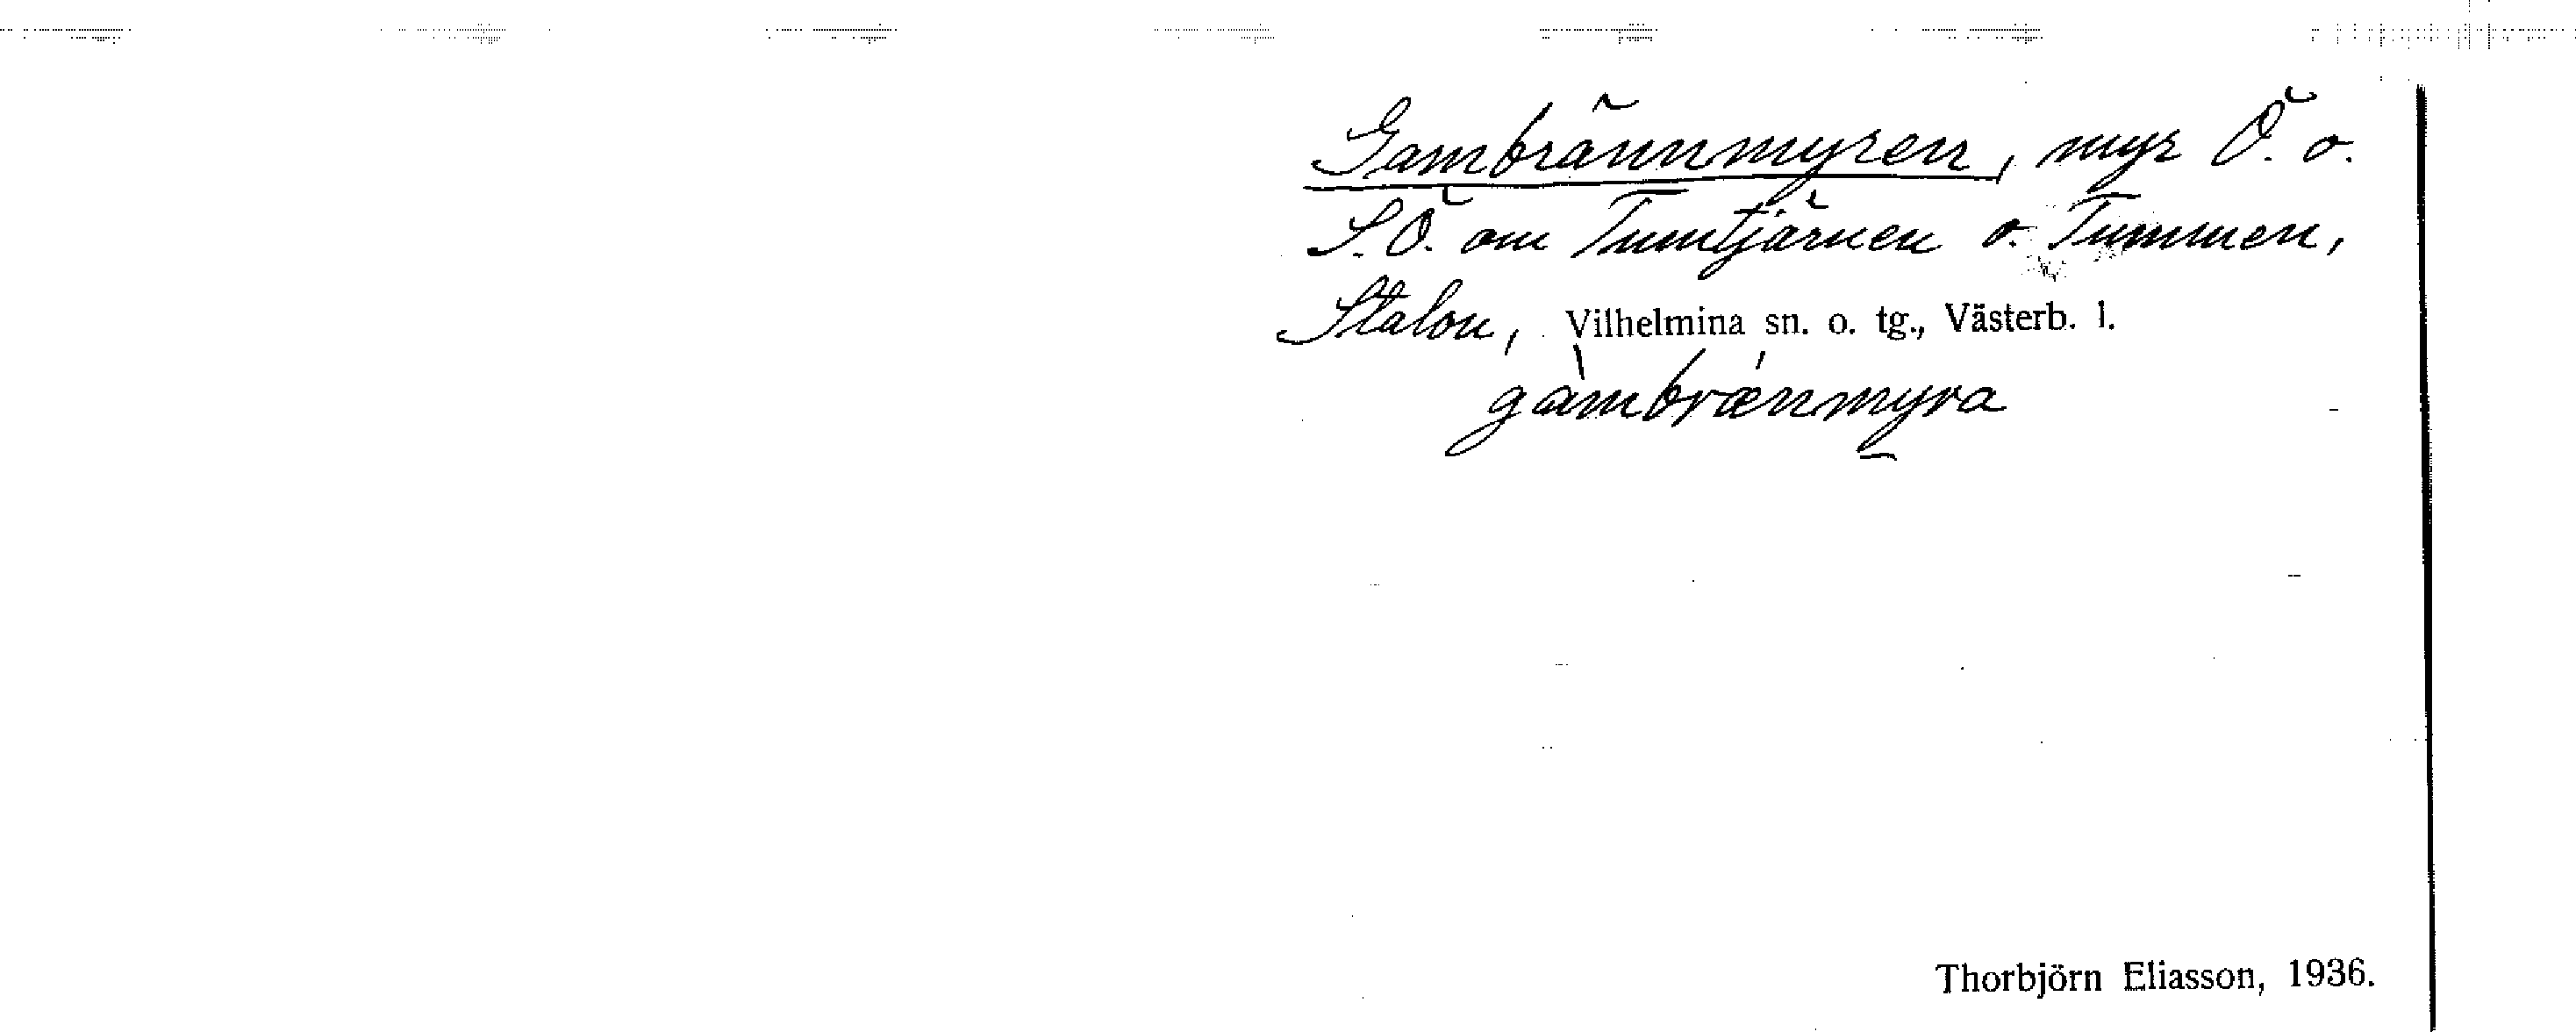 Gambrännmyren, myr Ö. o.
S.Ö. om Tumtjärnen o. Tummen,
Stalon, Vilhelmina sn. o. tg., Västerb. l.
gàmbrǽnmyra
Thorbjörn Eliasson, 1936.